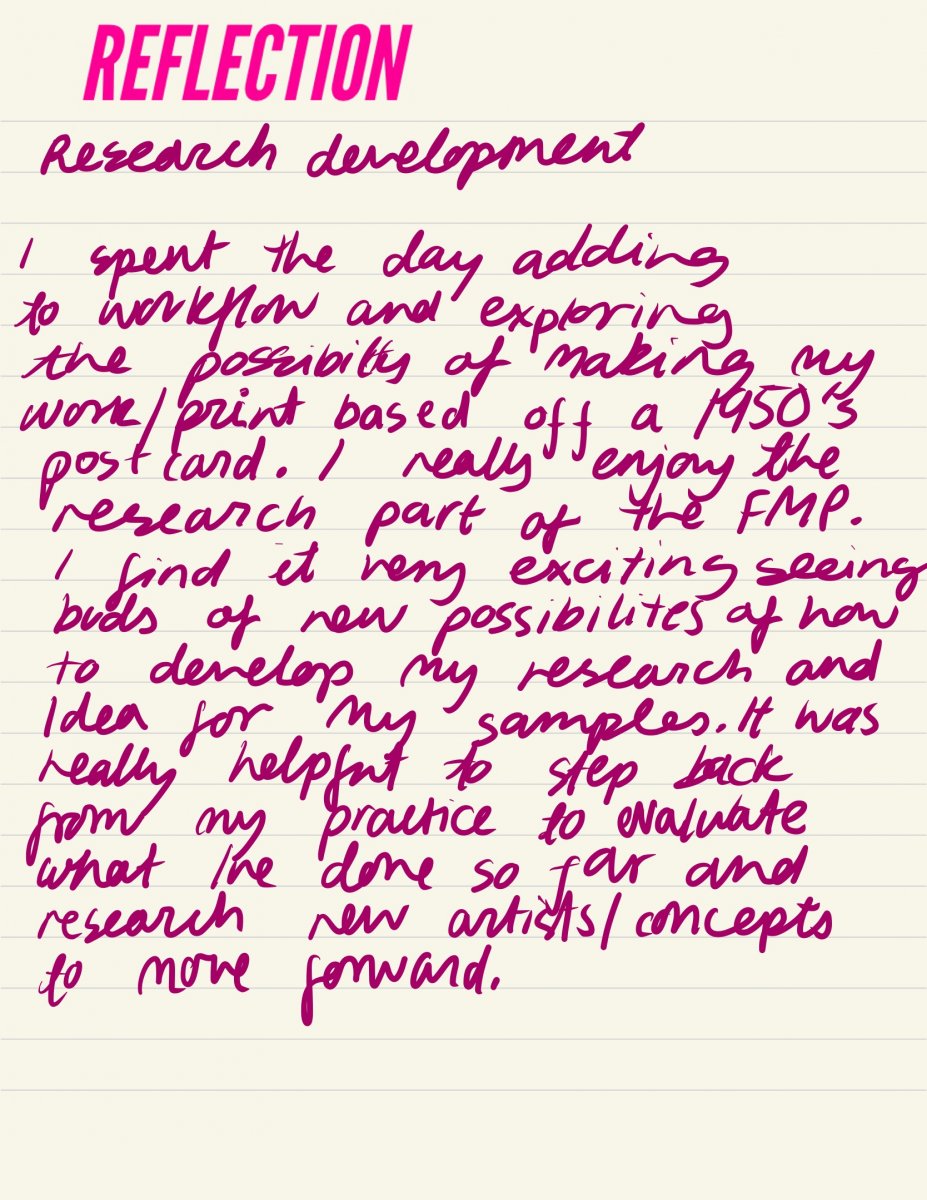 REFLECTION
Research development
I spent the day adding
to workflow and exploring
the possibilty of making my
work/print based off a 1950's
postcard. I really enjoy the
research part of the FMP.
I find it very exciting seeing
buds of new possibilites of how
to develop my research and
Idea for my samples. It was
really helpful to step back
from my practice to evaluate
what I've done so far and
research new artists/concepts
to move forward.